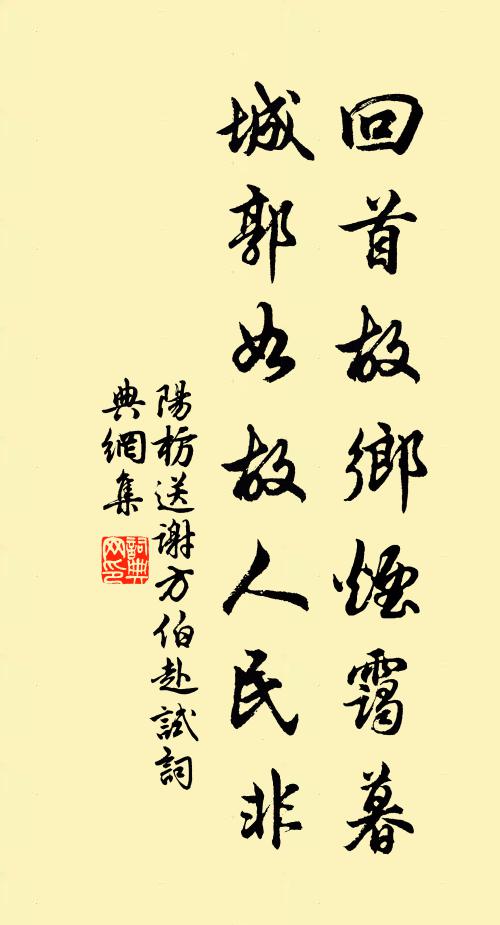 回首故鄉煙靄暮
城郭如故人民非
陽枋送謝方伯赴試詞
典網集
詞典網印